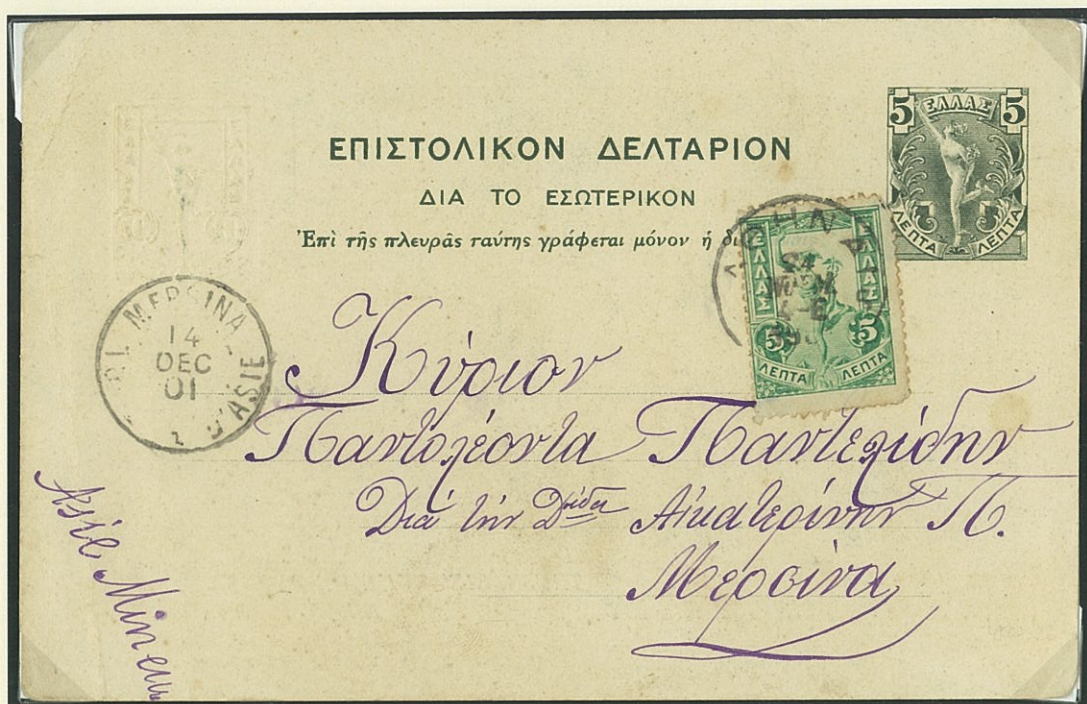 5 ΕΛΛΑΣ 5
ΛΕΠΤΑ ΛΕΠΤΑ
ΕΠΙΣΤΟΛΙΚΟΝ ΔΕΛΤΑΡΙΟΝ
ΔΙΑ ΤΟ ΕΣΩΤΕΡΙΚΟΝ
Ἐπὶ τῆς πλευρᾶς ταύτης γράφεται μόνον ἡ
ΕΛΛΑΣ ΕΛΛΑΣ
5 5
ΛΕΠΤΑ ΛΕΠΤΑ
MERSINA
14
DEC
01
D'ASIE
Κύριον
Πανταλέοντα Παντελίδην
Διὰ τὴν Δίδα Αἰκατερίνην Π.
Μερσίνα
Asie Mineu